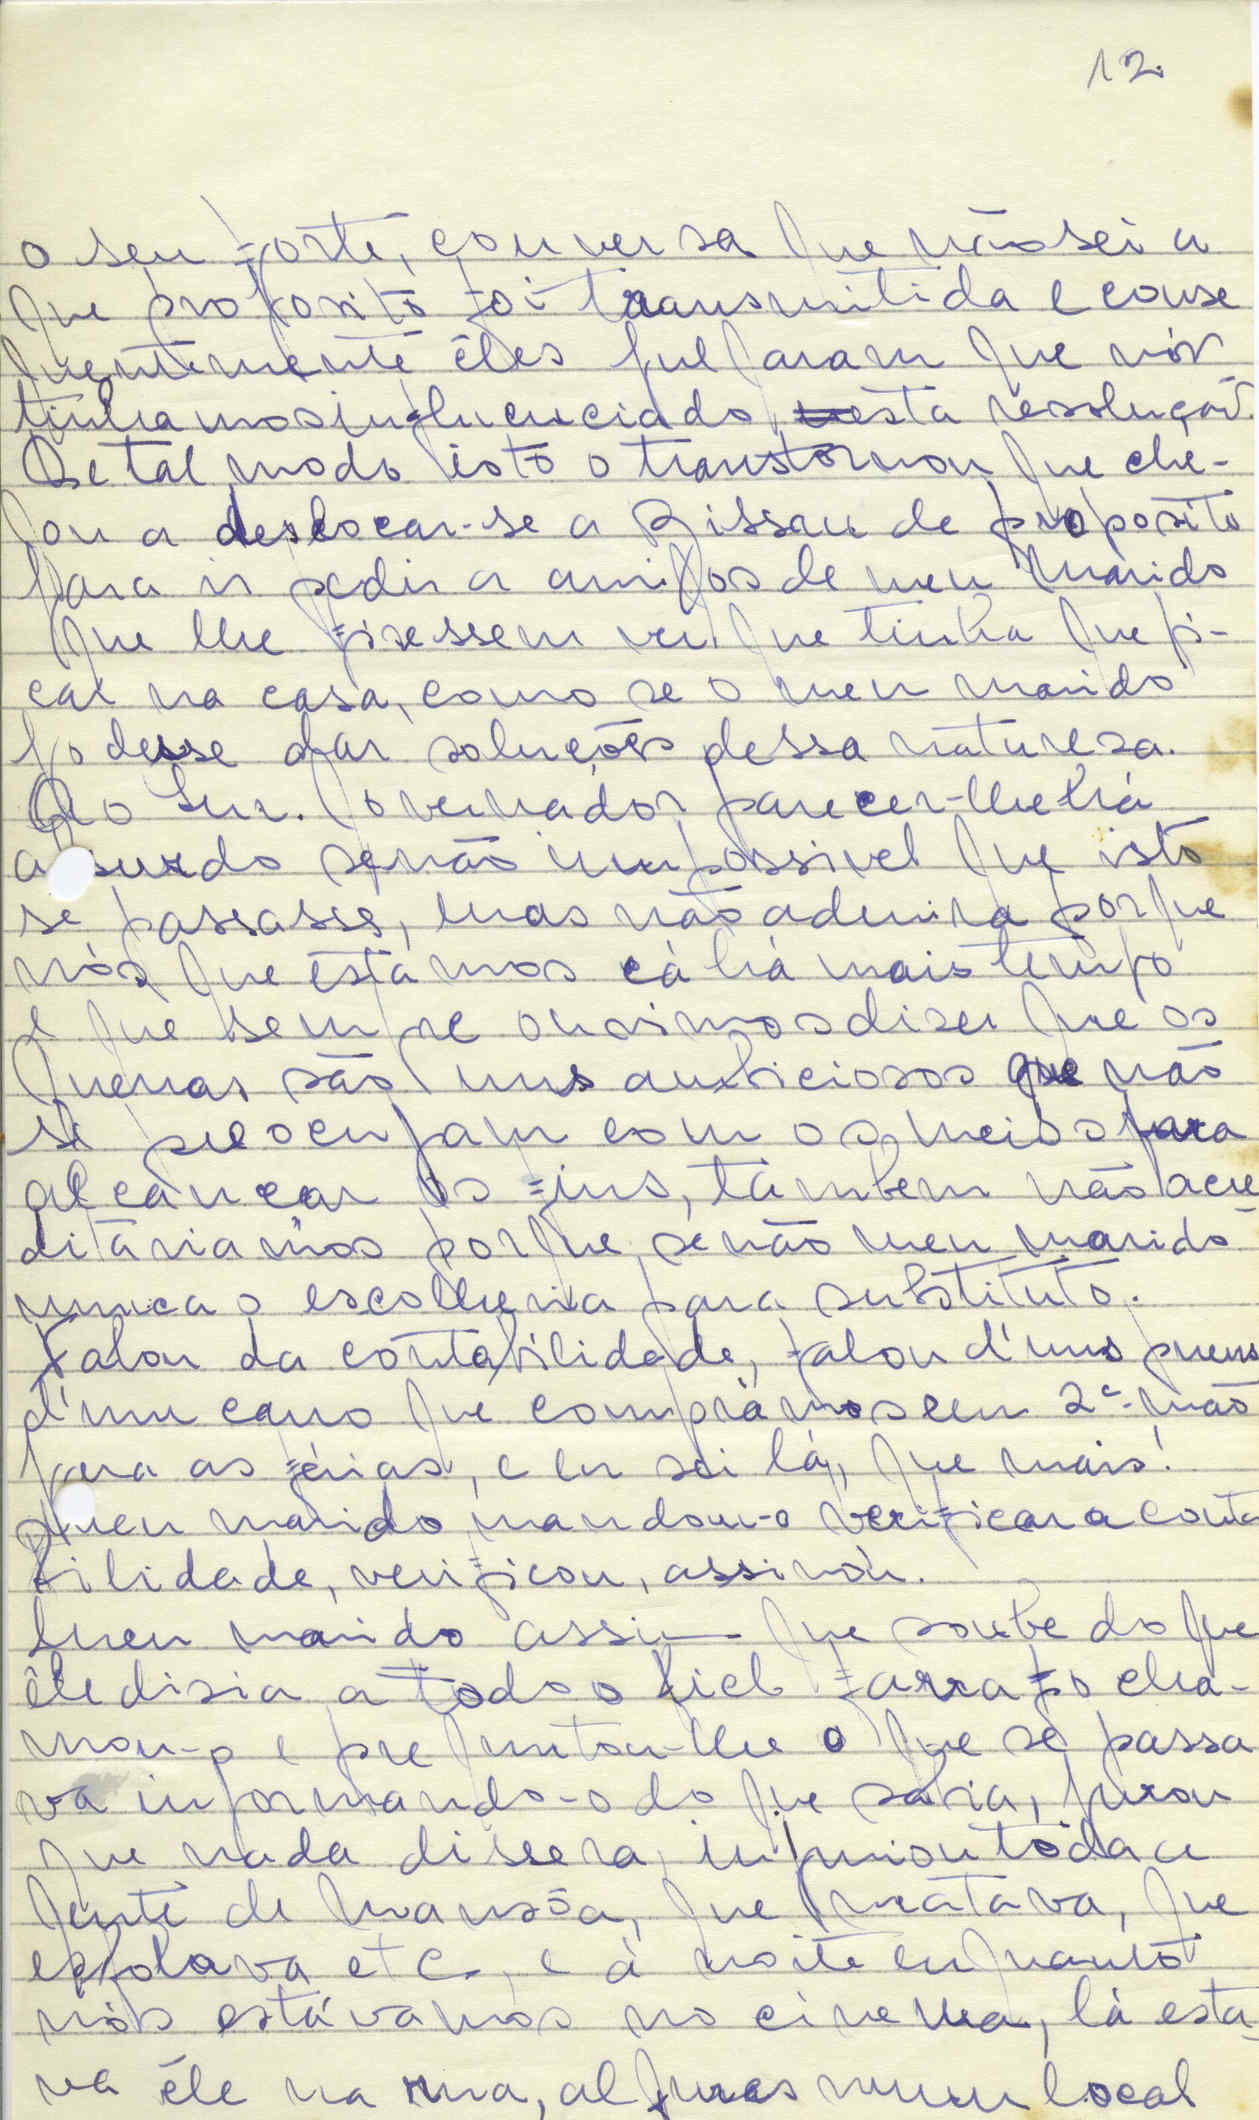 12.
o seu forte, conversa que não sei a
que proposito foi transmitida e conse
quentemente êles julgaram que nós
tinhamos influenciado nesta resolução.
De tal modo isto o transtornou que che-
gou a deslocar-se a Bissau de proposito
para ir pedir a amigos de meu marido
que lhe fizessem ver que tinha que fi-
car na casa, como se o meu marido
podesse dar soluções dessa natureza.
Ao Snr. Governador parecer-lhe há
absurdo senão impossivel que isto
se passasse, mas não admira porque
nós que estámos cá há mais tempo
e que sempre ouvimos dizer que os
são uns ambiciosos que não
se preocupam com os meios para
alcançar os fins, tambem não acre
ditáriamos porque senão meu marido
nunca o escolheria para substituto.
Falou da contabilidade, falou d'uns pneus
d'um carro que comprámos em 2ª mão
para as férias, e eu sei lá, que mais!
Meu marido mandou-o verificar a conta
bilidade, verificou, assinou.
Meu marido assim que soube do que
êle dizia a todo o fiel farrapo cha-
mou-o e preguntou-lhe o que se passa
va informando-o do que sabia, jurou
que nada dissera, injuriou toda a
gente de Mansôa, que matava, que
esfolava etc, e à noite enquanto
nós estávamos no cinema, lá esta
va êle na rua, algures num local